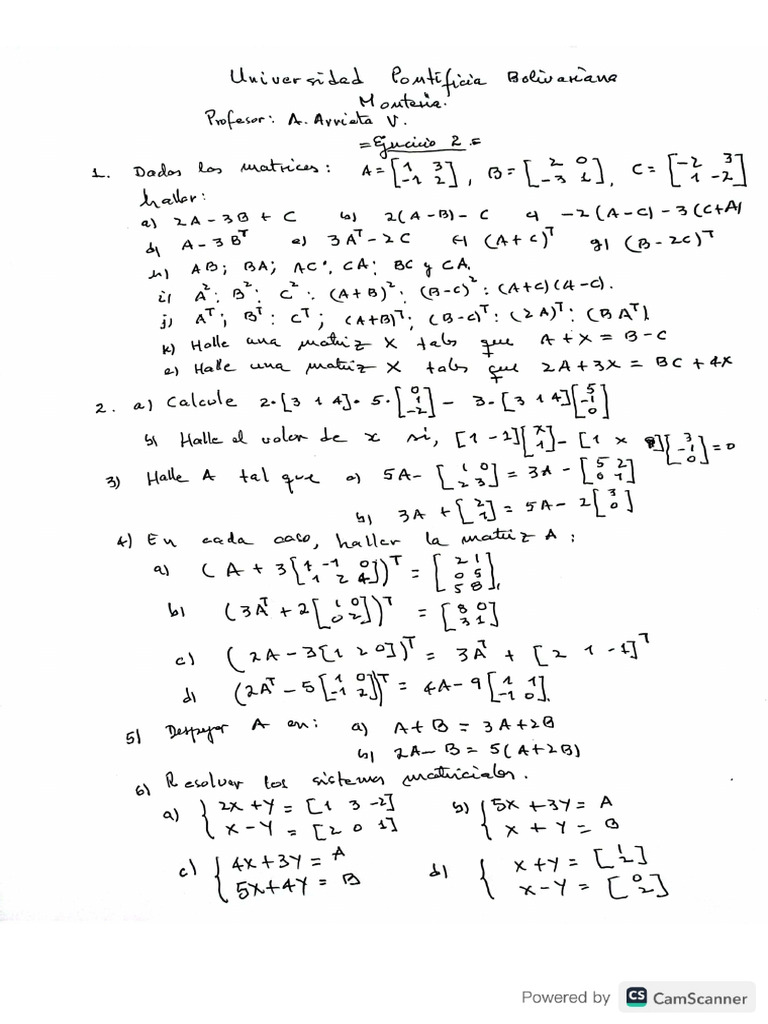 Universidad Pontificia Bolivariana
Montería.
Profesor: A. Arrieta V.
= Ejercicio 2 =
1. Dadas las matrices: A = [1 3; -1 2], B = [2 0; -3 1], C = [-2 3; 1 -2]
hallar:
a) 2A - 3B + C b) 2(A - B) - C c) -2(A - C) - 3(C + A)
d) A - 3B^T e) 3A^T - 2C f) (A + C)^T g) (B - 2C)^T
h) AB; BA; AC; CA; BC y CA.
i) A^2; B^2; C^2; (A+B)^2; (B-C)^2; (A+C)(A-C).
j) A^T; B^T; C^T; (A+B)^T; (B-C)^T; (2A)^T; (BA^T)
k) Halle una matriz X tales que A + X = B - C
e) Halle una matriz X tales que 2A + 3X = BC + 4X
2. a) Calcule 2·[3 1 4]·5·[0; 1; -2] - 3·[3 1 4][5; -1; 0]
b) Halle el valor de x si, [1 -1][x; 1] - [1 x][3; -1; 0] = 0
3) Halle A tal que a) 5A - [1 0; 2 3] = 3A - [5 2; 0 1]
b) 3A + [2; 1] = 5A - 2[3; 0]
4) En cada caso, hallar la matriz A:
a) (A + 3[1 -1 0; 1 2 4])^T = [2 1; 0 5; 5 8]
b) (3A^T + 2[1 0; 0 2])^T = [8 0; 3 1]
c) (2A - 3[1 2 0])^T = 3A^T + [2 1 -1]^T
d) (2A^T - 5[1 0; -1 2])^T = 4A - 9[1 1; -1 0]
5) Despejar A en: a) A + B = 3A + 2B
b) 2A - B = 5(A + 2B)
6) Resolver los sistemas matriciales.
a) { 2X + Y = [1 3 -2] b) { 5X + 3Y = A
X - Y = [2 0 1] X + Y = B
c) { 4X + 3Y = A d) { X + Y = [1; 2]
5X + 4Y = B X - Y = [0; 2]
Powered by CS CamScanner